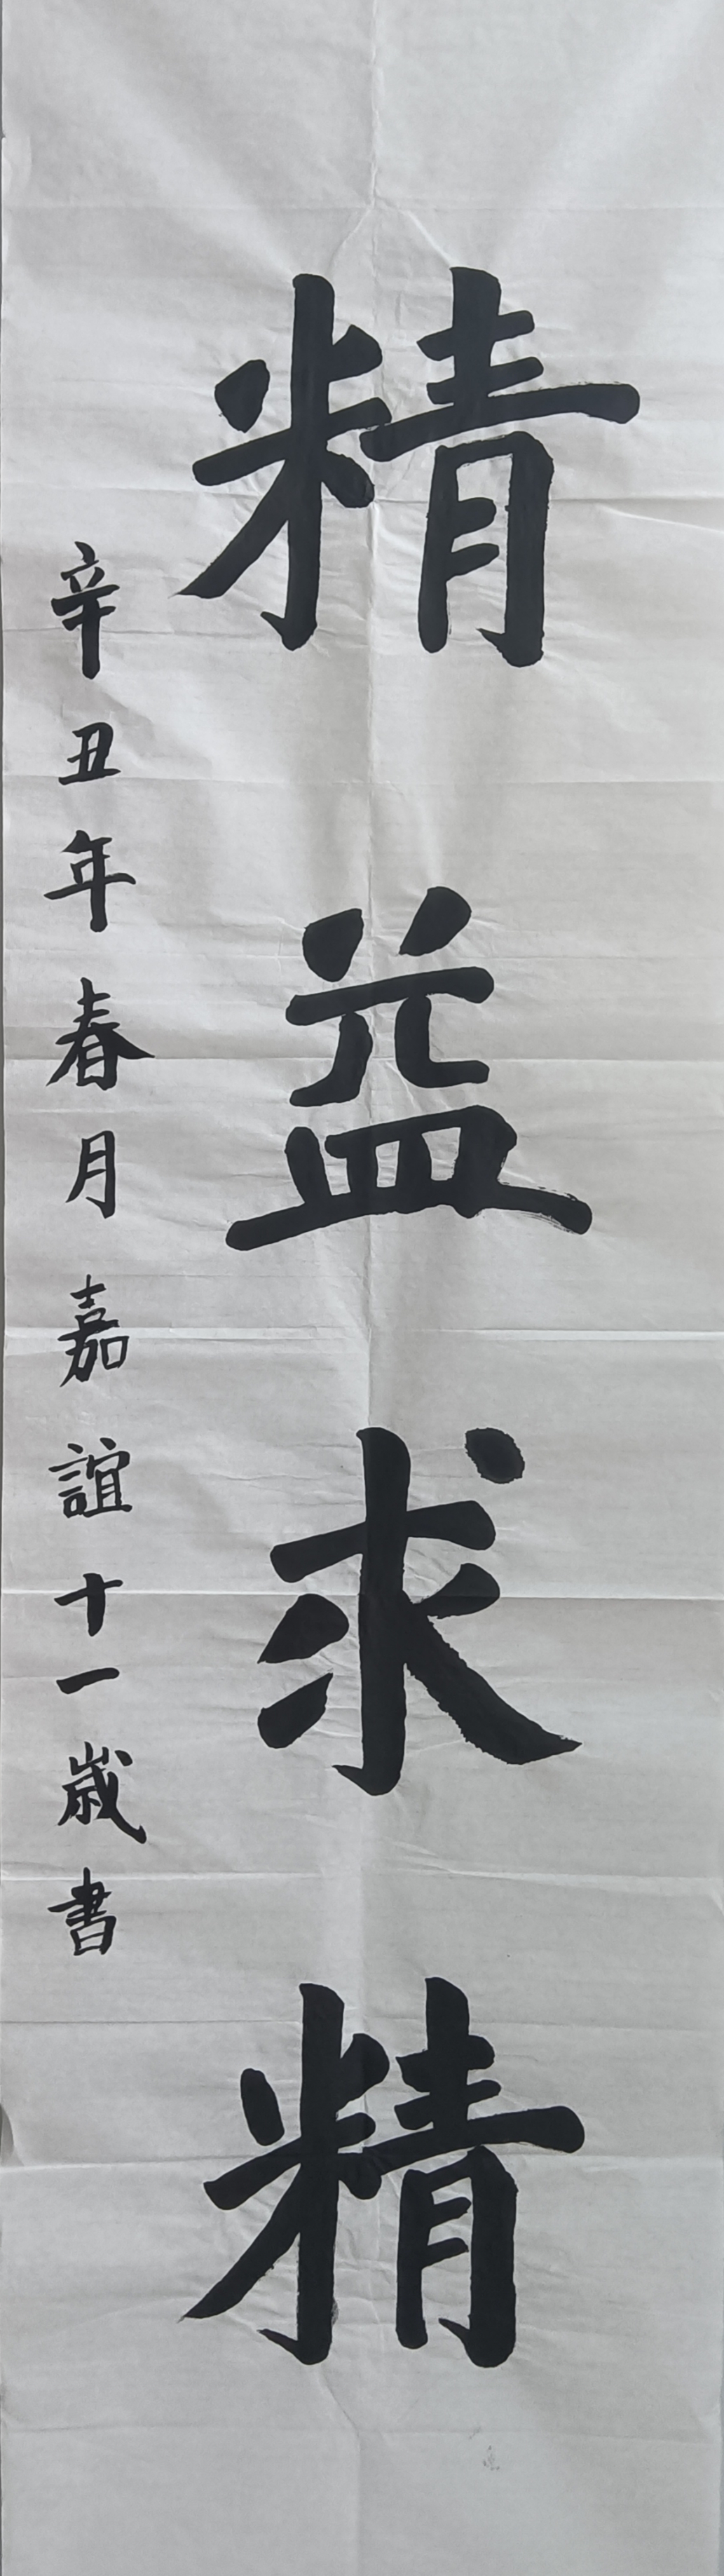 精益求精
辛丑年春月嘉誼十一歲書